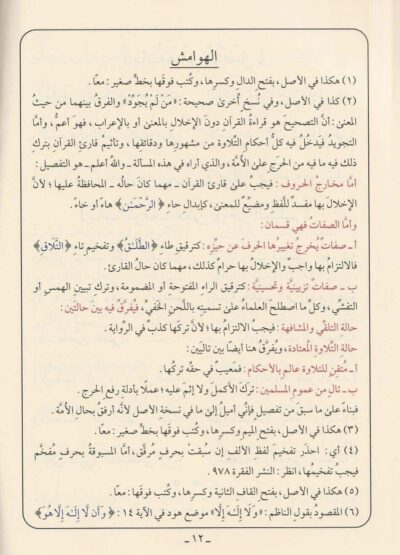 الهوامش
(١) هكذا في الأصل، بفتح الدال وكسرها، وكُتب فوقَها بخطٍّ صغير: معًا.
(٢) كذا في الأصل، وفي نُسخٍ أُخرىٰ صحيحة: «مَنْ لَمْ يُجَوِّدْ» والفرقُ بينهما من حيثُ
المعنىٰ: أنَّ التصحيحَ هو قراءةُ القرآنِ دونَ الإخلالِ بالمعنىٰ أو بالإعراب، فهوَ أعمُّ، وأمَّا
التجويدُ فيَدخُلُ فيه كلُّ أحكامِ التِّلاوة من مشهورِها ودقائقِها، وتأثيمُ قارئِ القرآنِ بتركِ
ذلك فيه ما فيه من الحرَجِ علىٰ الأُمَّة، والذي أراه في هذه المسألة ـ واللهُ أعلم ـ هو التفصيل:
أمَّا مخارجُ الحروف: فيجبُ علىٰ قارئِ القرآن ـ مهما كانَ حالُه ـ المحافظةُ عليها؛ لأنَّ
الإخلالَ بها مفسدٌ للَّفظِ ومضيِّعٌ للمعنىٰ، كإبدالِ حاءِ ﴿الرَّحْمَـٰنِ﴾ هاءً أو خاءً.
وأمَّا الصفاتُ فهي قسمان:
أ ـ صفاتٌ يُخرجُ تغييرُها الحرفَ عن حيِّزِه: كترقيقِ طاءِ ﴿الطَّلَـٰقَ﴾ وتفخيمِ تاءِ ﴿التَّلَاقِ﴾
فالالتزامُ بها واجبٌ والإخلالُ بها حرامٌ كذلك، مهما كان حالُ القارئ.
ب ـ صفاتٌ تزيينيَّةٌ وتحسينيَّة: كترقيقِ الراءِ المفتوحة أو المضمومة، وتركِ تبيينِ الهمسِ أو
التفشِّي، وكلِّ ما اصطلحَ العلماءُ علىٰ تسميتِه باللَّحنِ الخَفيِّ، فيُفرَّقُ فيه بينَ حالتَين:
حالةِ التلقِّي والمشافهة: فيجبُ الالتزامُ بها؛ لأنَّ تركَها كذبٌ في الرِّواية.
حالةِ التِّلاوة المعتادة، ويُفرَّقُ هنا أيضًا بين تاليَين:
أ ـ مُتقِنٍ للتلاوةِ عالمٍ بالأحكام: فمَعيبٌ في حقِّه تركُها.
ب ـ تالٍ من عمومِ المسلمين: تركَ الأكملَ ولا إثمَ عليه؛ عملًا بأدلةِ رفعِ الحرج.
فبناءً علىٰ ما سبقَ من تفصيلٍ فإنِّي أميلُ إلىٰ ما في نسخةِ الأصلِ لأنَّه أرفقُ بحالِ الأُمَّة.
(٣) هكذا في الأصل، بفتحِ الميمِ وكسرِها، وكُتب فوقَها بخطٍّ صغير: معًا.
(٤) أي: احذر تفخيمَ لفظِ الألفِ إن سُبقت بحرفٍ مُرقَّق، أمَّا المسبوقةُ بحرفٍ مُفخَّم
فيجبُ تفخيمُها، انظر: النشر الفقرة ٩٧٨.
(٥) هكذا في الأصل، بفتحِ القافِ الثانيةِ وكسرِها، وكُتب فوقَها: معًا.
(٦) المقصودُ بقولِ الناظم: «وَلَا إِلَـٰهَ إِلَّا» موضعُ هود في الآية ١٤: ﴿وَأَن لَّا إِلَـٰهَ إِلَّا هُوَ﴾
ـ ١٢ ـ